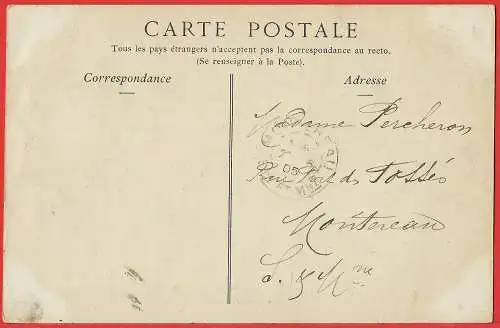 CARTE POSTALE
Tous les pays étrangers n'acceptent pas la correspondance au recto.
(Se renseigner à la Poste).
Correspondance
Adresse
Madame Percheron
Rue des Fossés
Montereau
S. & Mne
05
ET MNE